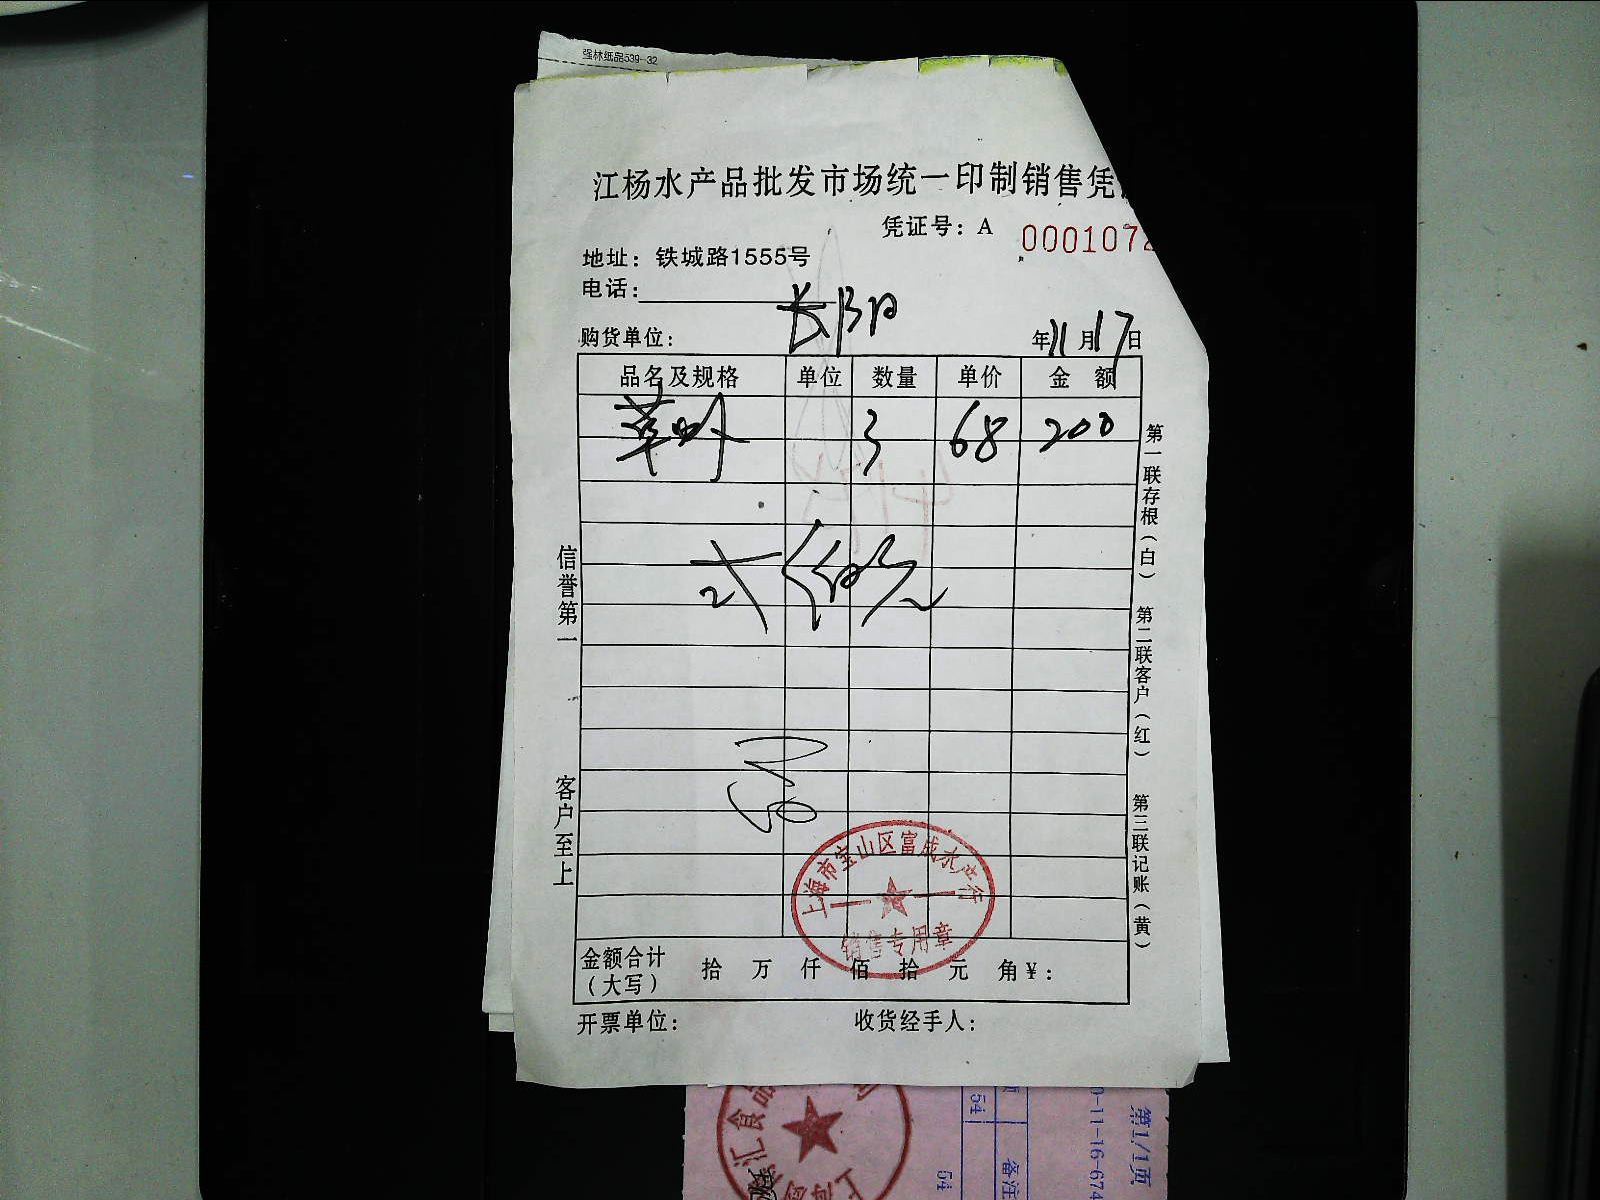 强林纸品539-32
江杨水产品批发市场统一印制销售凭
凭证号：A 0001072
地址：铁城路1555号
电话：
购货单位： 长阳 年11月17日
品名及规格 单位 数量 单价 金额
草虾 3 68 200
信誉第一
客户至上
第一联存根（白）
第二联客户（红）
第三联记账（黄）
上海市宝山区富成水产行
销售专用章
金额合计（大写） 拾 万 仟 佰 拾 元 角 ¥：
开票单位： 收货经手人：
第1/1页
0-11-16-674
备注
54
54